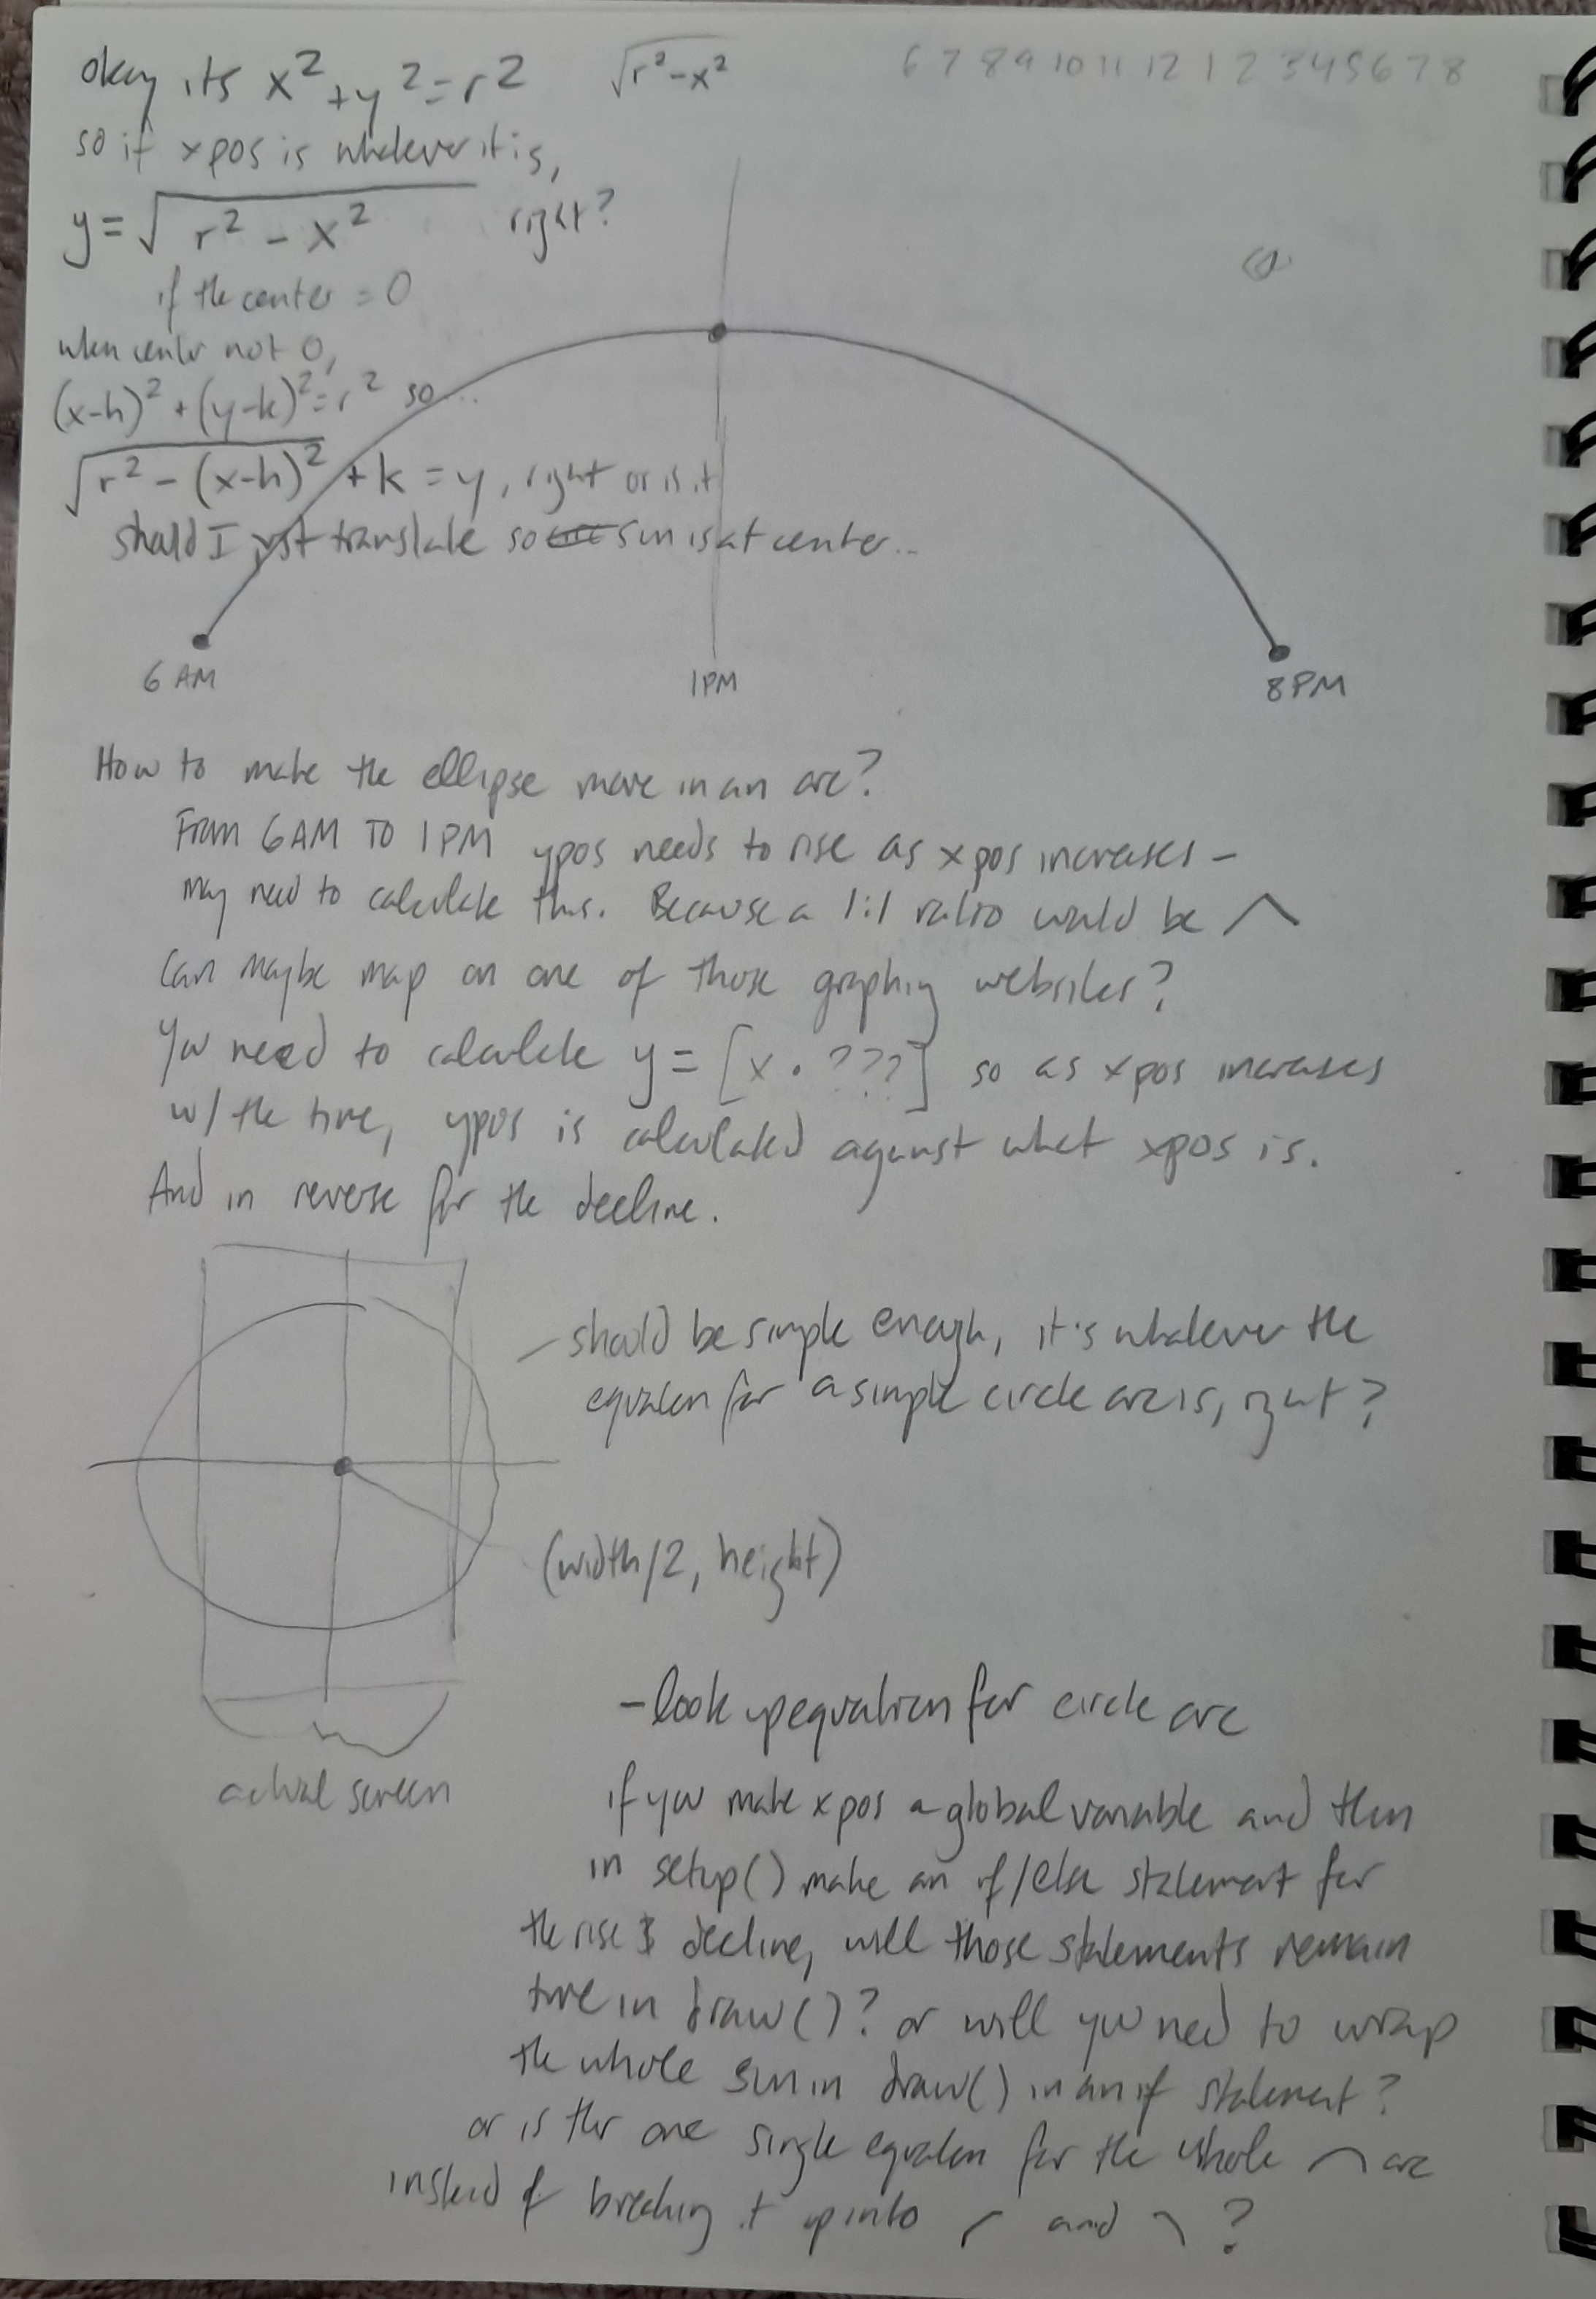 okay its x² + y² = r²
√r²-x²
6 7 8 9 10 11 12 1 2 3 4 5 6 7 8
so if xpos is whatever it is,
y = √r² - x² right?
if the center = 0
when center not 0,
(x-h)² + (y-k)² = r² so...
√r² - (x-h)² + k = y, right or is it
should I just translate so sun is at center...
6 AM
1PM
8PM
How to make the ellipse move in an arc?
From 6AM TO 1PM ypos needs to rise as xpos increases -
may need to calculate this. Because a 1:1 ratio would be ⋀
Can maybe map on one of those graphing websites?
You need to calculate y = [x · ???] so as xpos increases
w/ the time, ypos is calculated against what xpos is.
And in reverse for the decline.
- should be simple enough, it's whatever the
equation for a simple circle arc is, right?
(width/2, height)
- look up equation for circle arc
actual screen
if you make xpos a global variable and then
in setup() make an if/else statement for
the rise & decline, will those statements remain
true in draw()? or will you need to wrap
the whole sun in draw() in an if statement?
or is ther one single equation for the whole ⌒ arc
instead of breaking it up into ╭ and ╮ ?